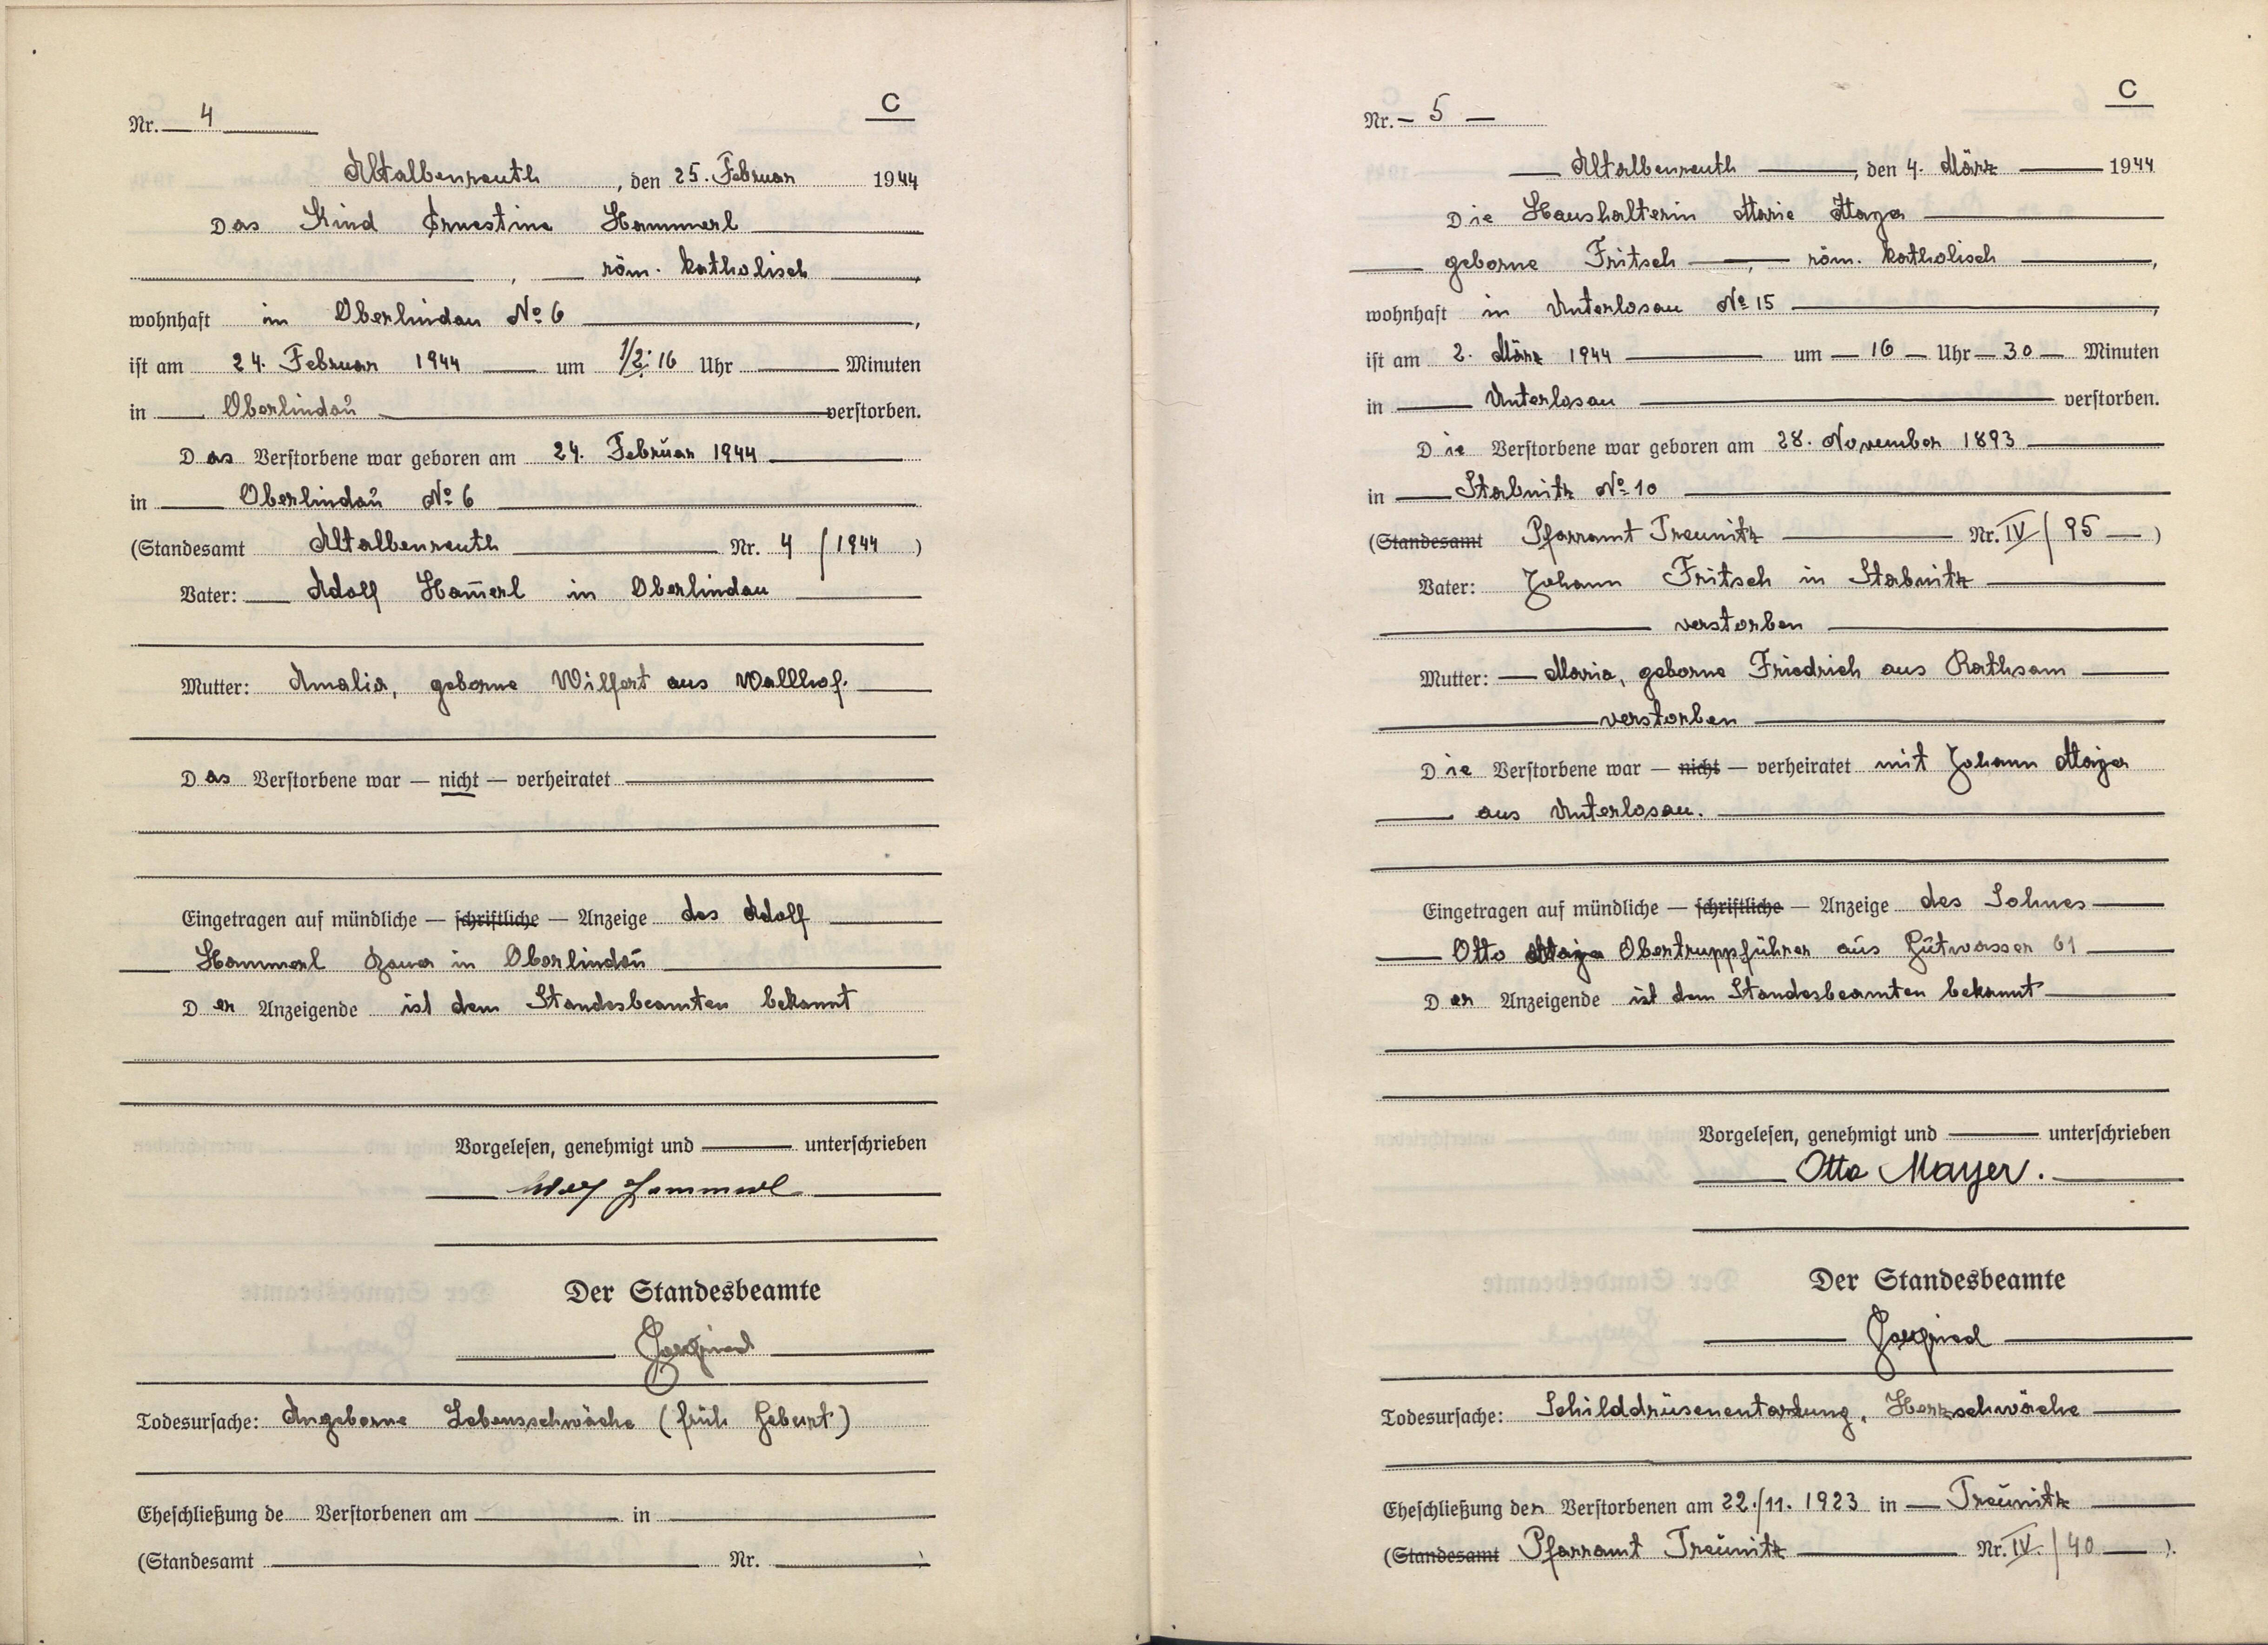 C
Nr. 4
Altalbenreuth, den 25. Februar 1944
Das Kind Ernestine Hammerl
, röm. katholisch,
wohnhaft in Oberlindau No 6,
ist am 24. Februar 1944 um 1/2 16 Uhr Minuten
in Oberlindau verstorben.
Das Verstorbene war geboren am 24. Februar 1944
in Oberlindau No 6
(Standesamt Altalbenreuth Nr. 4 / 1944)
Vater: Adolf Ham̄erl in Oberlindau
Mutter: Amalia, geborne Wilfert aus Wallhof.
Das Verstorbene war — nicht — verheiratet
Eingetragen auf mündliche — schriftliche — Anzeige des Adolf
Hammerl Bauer in Oberlindau
Der Anzeigende ist dem Standesbeamten bekannt
Vorgelesen, genehmigt und unterschrieben
Adolf Hammerl
Der Standesbeamte
Todesursache: Angeborne Lebensschwäche (früh Geburt)
Eheschließung de Verstorbenen am in
(Standesamt Nr. )
C
Nr. 5
Altalbenreuth, den 4. März 1944
Die Haushalterin Marie Mayer
geborne Fritsch, röm. katholisch,
wohnhaft in Unterlosau No 15,
ist am 2. März 1944 um 16 Uhr 30 Minuten
in Unterlosau verstorben.
Die Verstorbene war geboren am 28. November 1893
in Stabnitz No 10
(Standesamt Pfarramt Treunitz Nr. IV / 95)
Vater: Johann Fritsch in Stabnitz
verstorben
Mutter: Maria, geborne Friedrich aus Rathsam
verstorben
Die Verstorbene war — nicht — verheiratet mit Johann Mayer
aus Unterlosau.
Eingetragen auf mündliche — schriftliche — Anzeige des Sohnes
Otto Mayer Obertruppführer aus Gutwasser 61
Der Anzeigende ist dem Standesbeamten bekannt
Vorgelesen, genehmigt und unterschrieben
Otto Mayer.
Der Standesbeamte
Todesursache: Schilddrüsenentartung, Herzschwäche
Eheschließung der Verstorbenen am 22./11. 1923 in Treunitz
(Standesamt Pfarramt Treunitz Nr. IV. / 40).